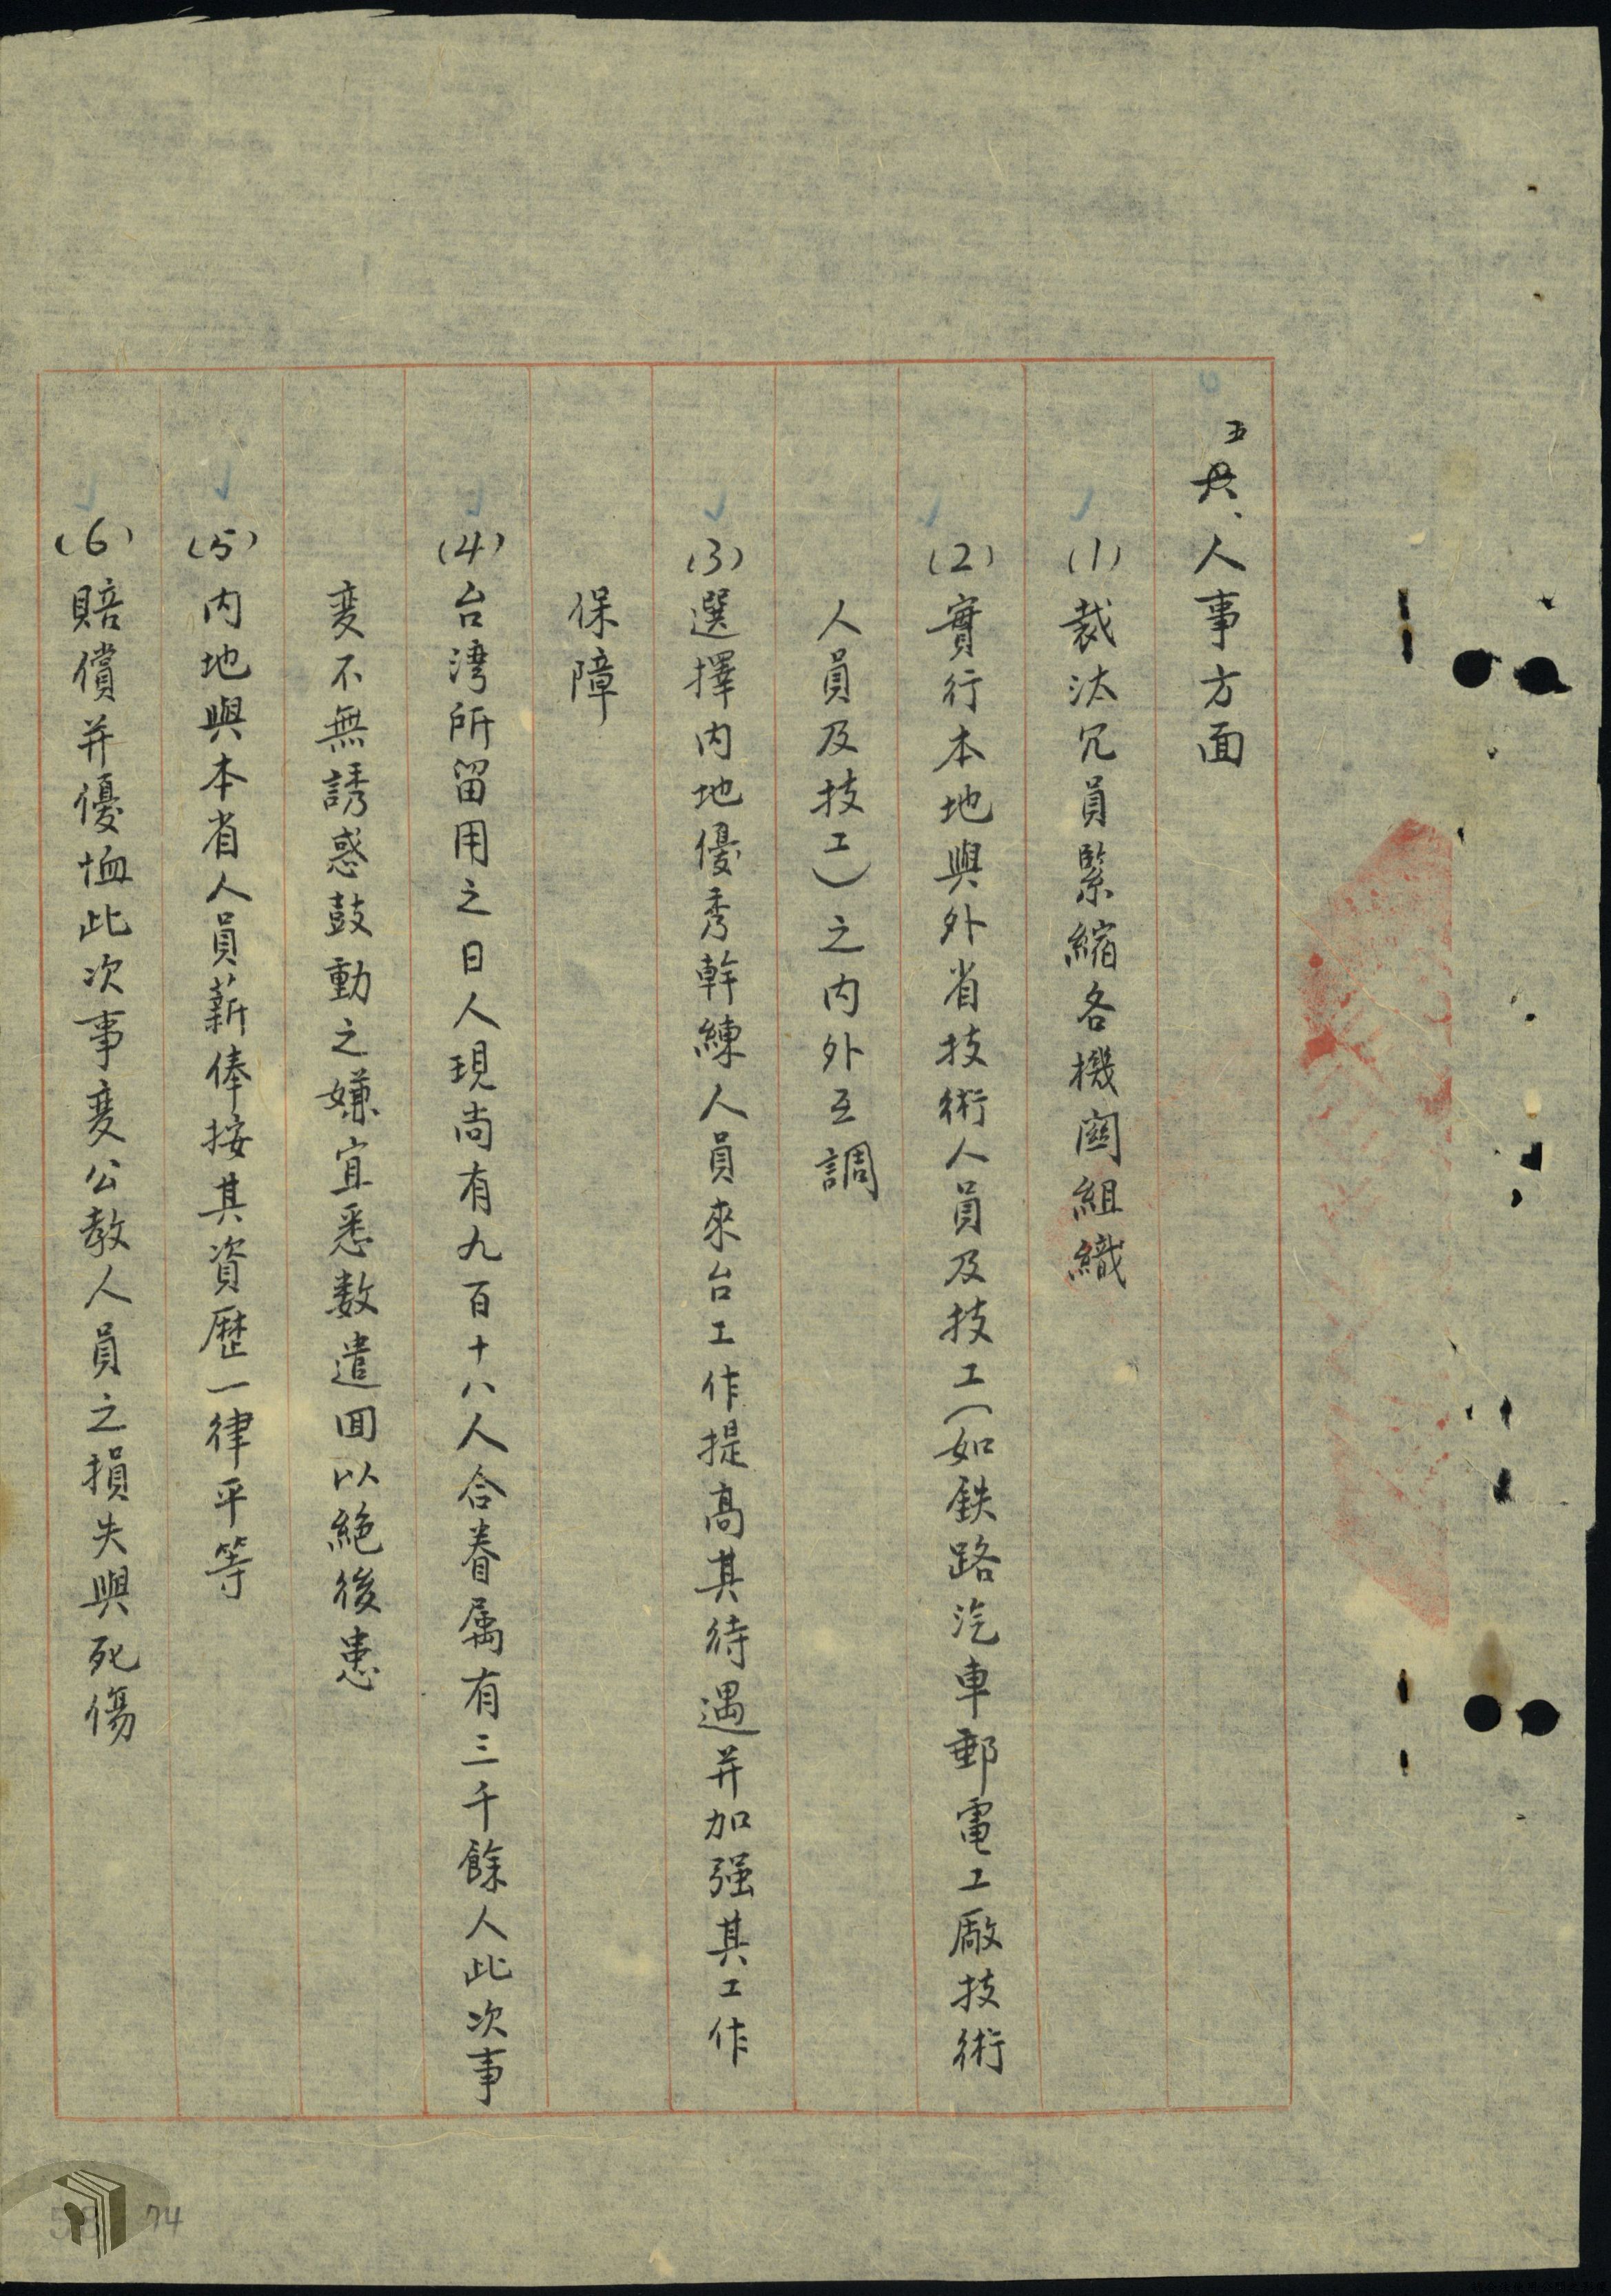 五、人事方面
(1)裁汰冗員緊縮各機関組織
(2)實行本地與外省技術人員及技工(如鉄路汽車郵電工廠技術
人員及技工)之内外互調
(3)選擇内地優秀幹練人員來台工作提高其待遇并加强其工作
保障
(4)台湾所留用之日人現尚有九百十八人合眷属有三千餘人此次事
変不無誘惑鼓動之嫌宜悉数遣囬以絶後患
(5)内地與本省人員薪俸按其資歴一律平等
(6)賠償并優恤此次事変公教人員之損失與死傷
74